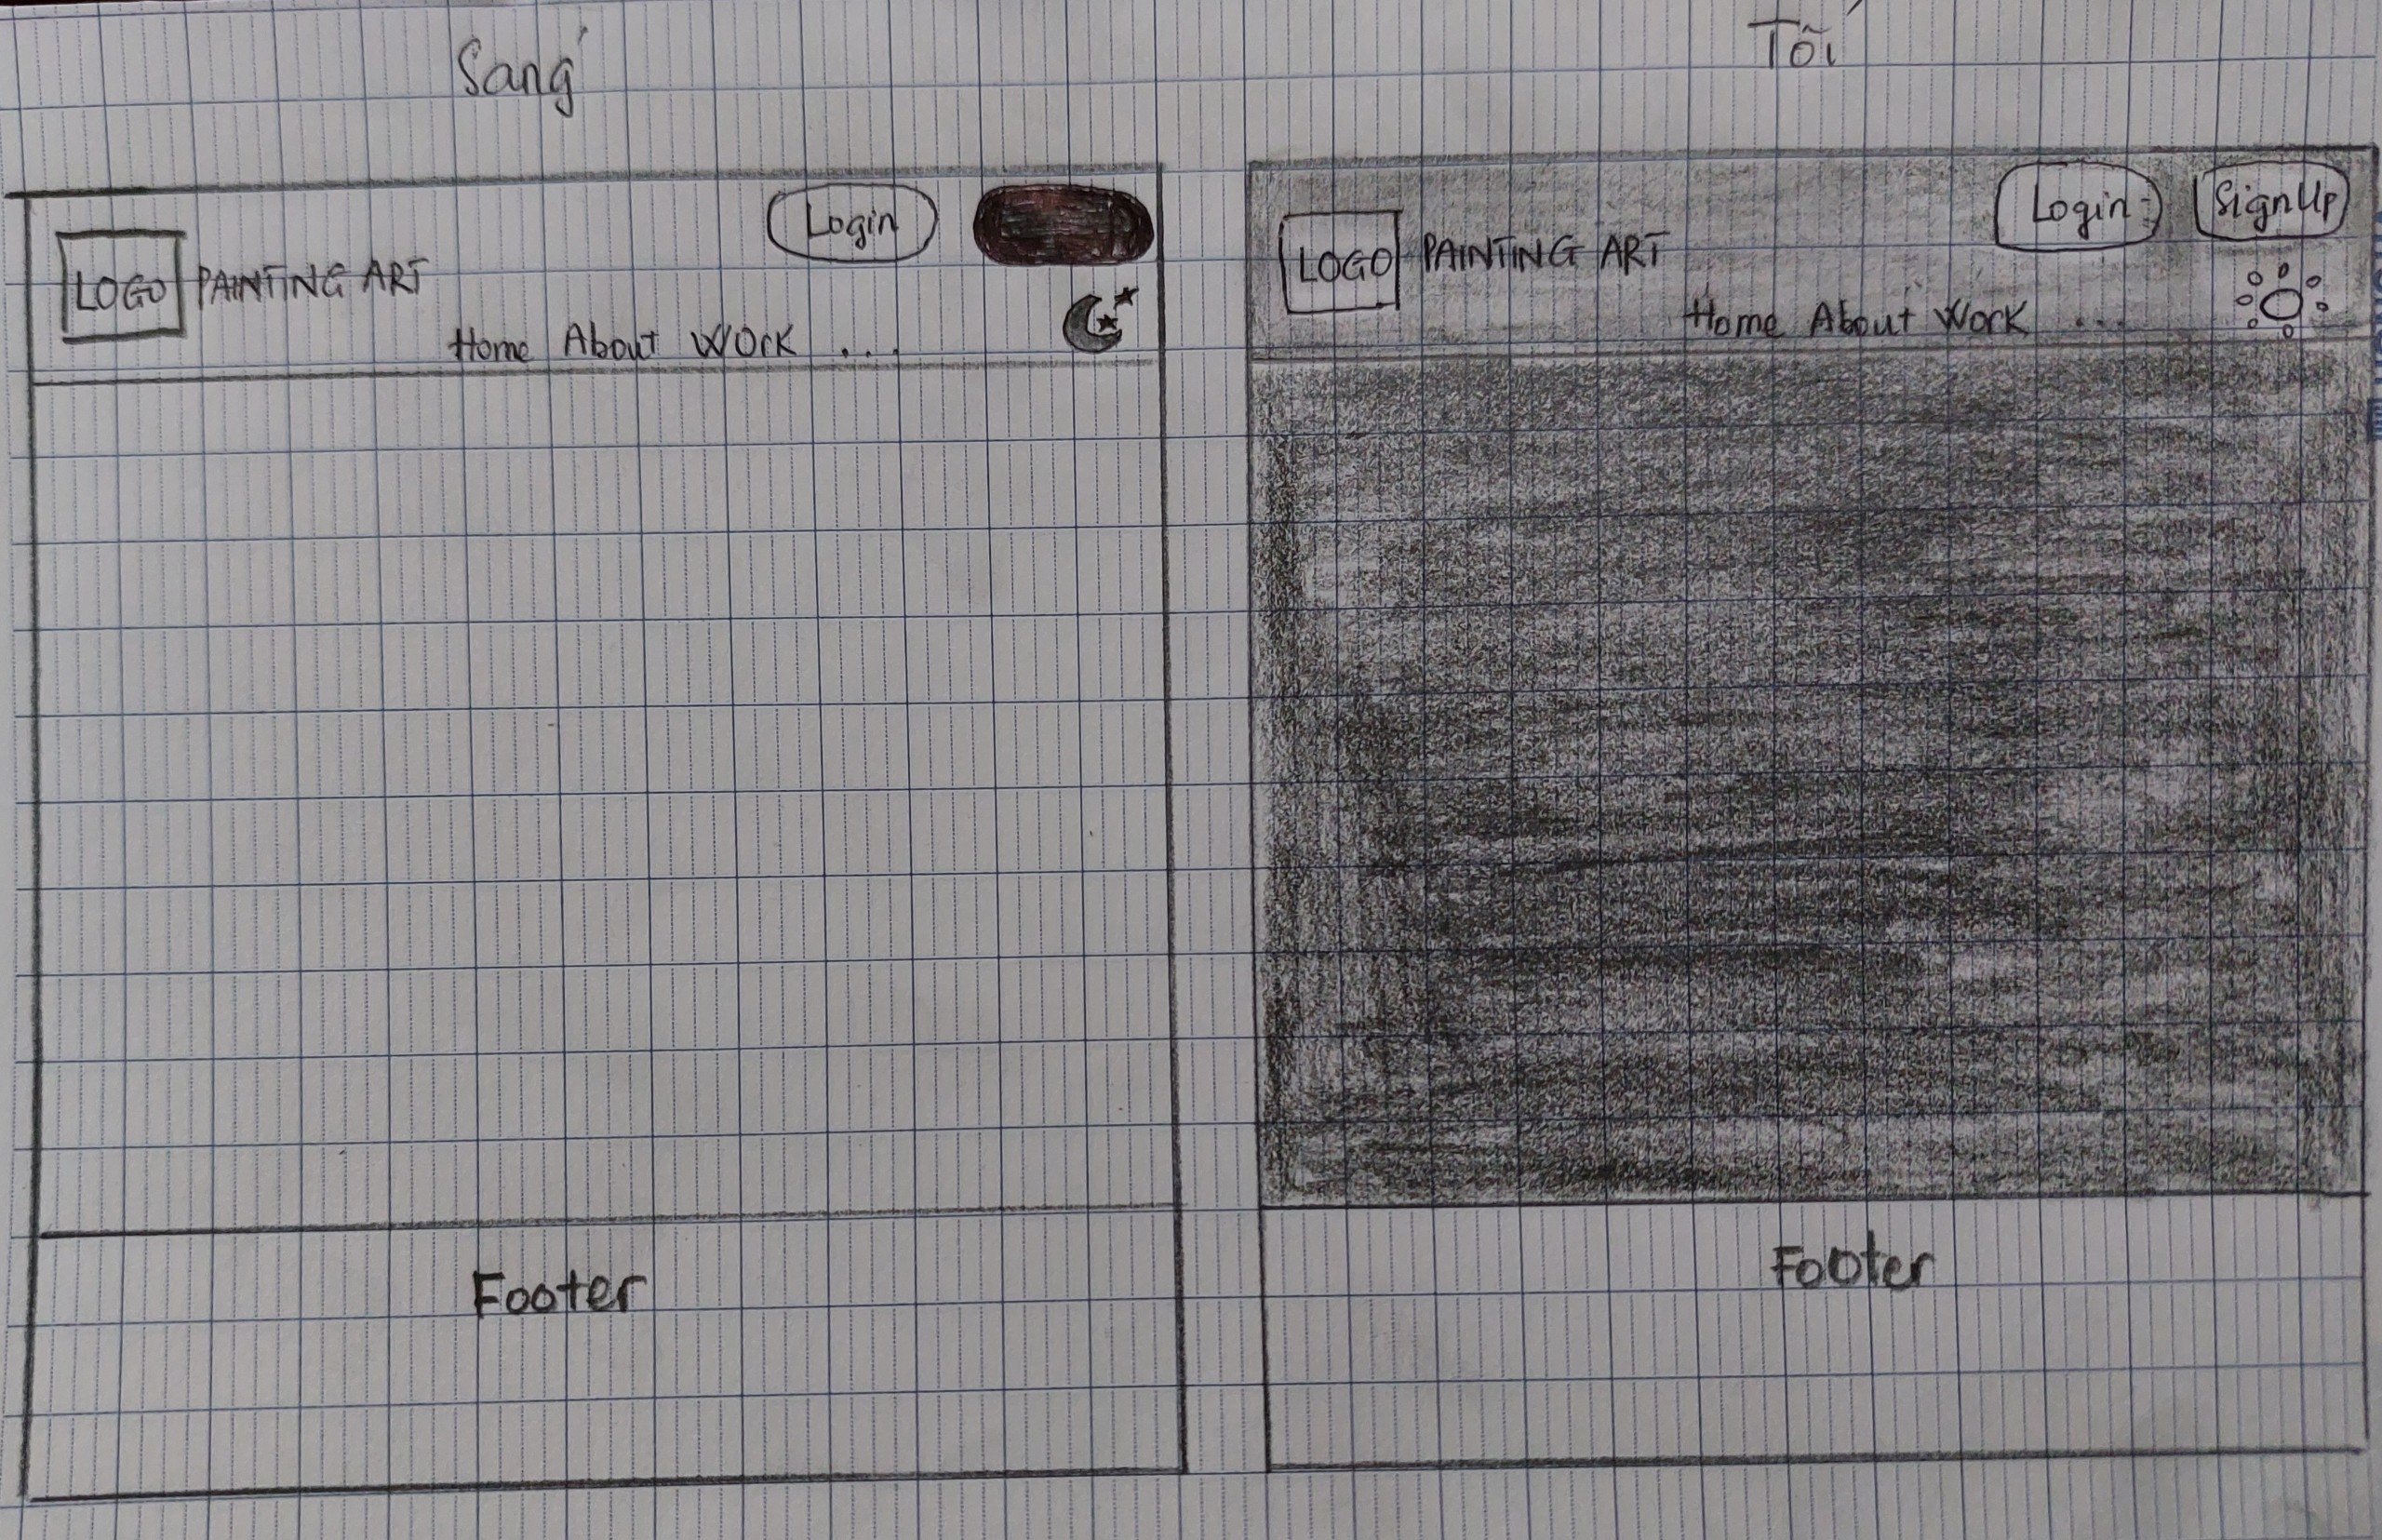 Sáng
Login
LOGO PAINTING ART
Home About Work ...
Footer
Tối
Login SignUp
LOGO PAINTING ART
Home About Work ...
Footer